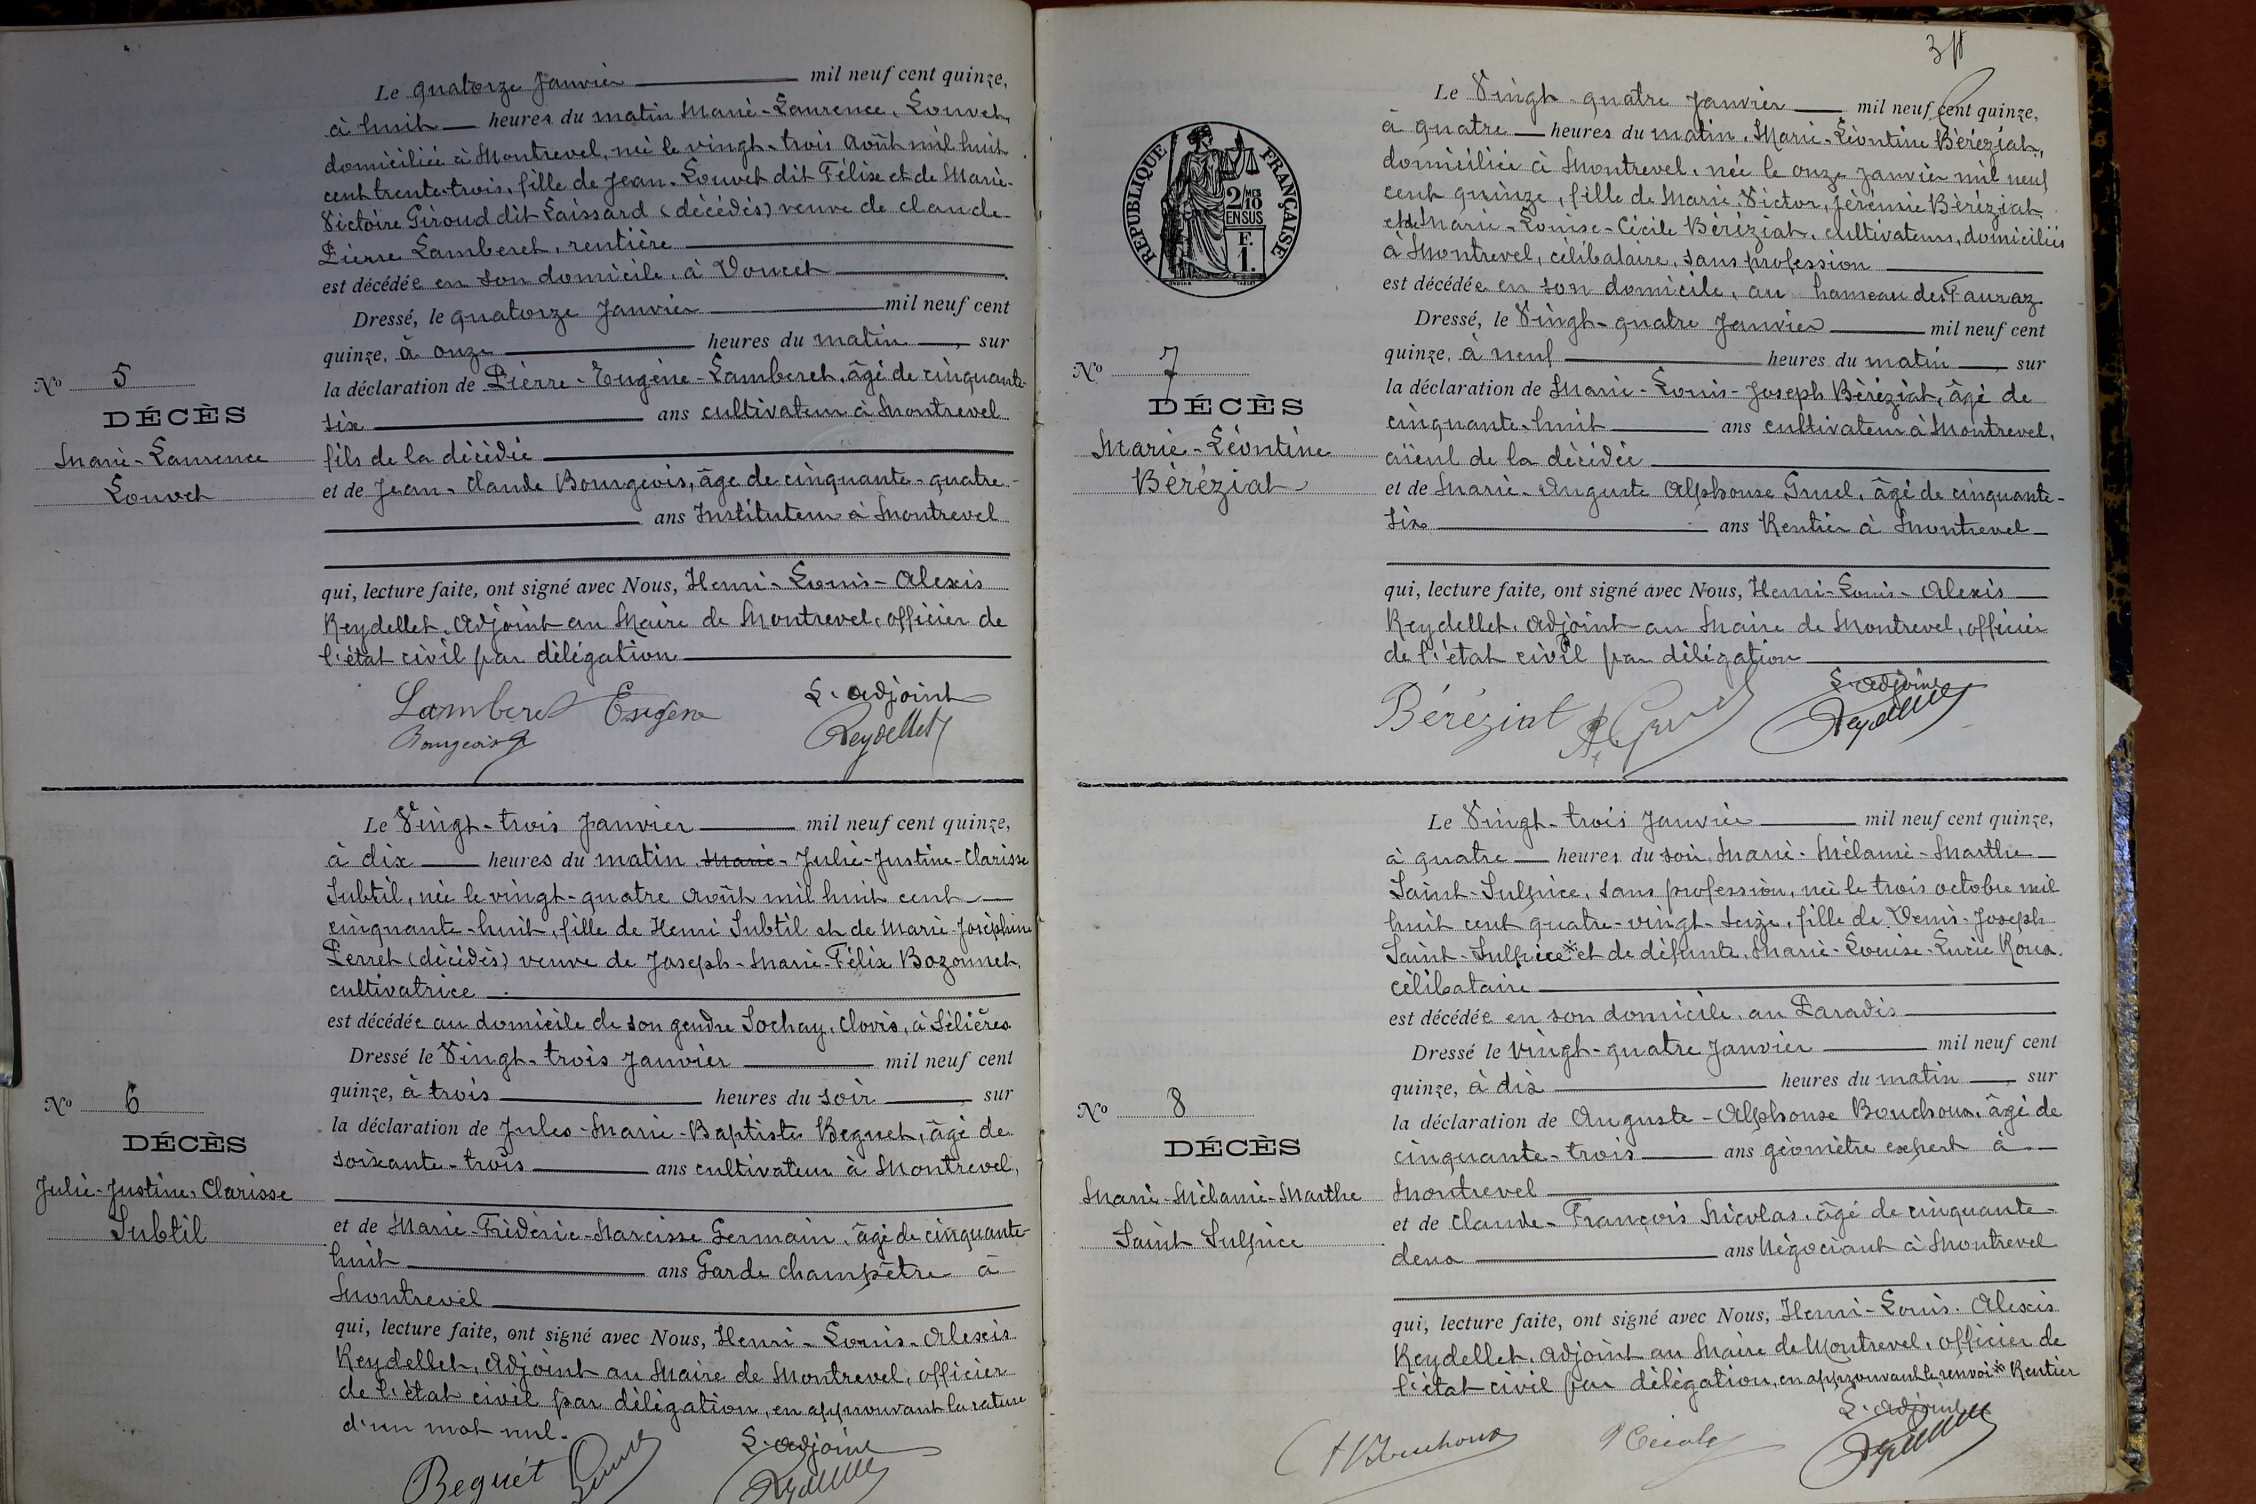 Le quatorze Janvier mil neuf cent quinze,
à huit heures du matin Marie-Laurence, Louvet,
domiciliée à Montrevel, née le vingt-trois Août mil huit
cent trente-trois, fille de Jean-Louvet dit Félix et de Marie-
Victoire Giroud dit Laissard (décédés) veuve de claude-
Pierre Lamberet, rentière
est décédée en son domicile, à Voucet
Dressé, le quatorze Janvier mil neuf cent
quinze, à onze heures du matin, sur
la déclaration de Pierre-Eugène-Lamberet, âgé de cinquante-
six ans cultivateur à Montrevel
fils de la décédée
et de Jean-Claude Bourgeois, âgé de cinquante-quatre-
ans Instituteur à Montrevel
qui, lecture faite, ont signé avec Nous, Henri-Louis-Alexis
Reydellet, Adjoint au Maire de Montrevel, officier de
l'état civil par délégation
Lamberet Eugène
L'adjoint
Bourgeois
Reydellet
No 5
DÉCÈS
Marie-Laurence
Louvet
Le Vingt-trois Janvier mil neuf cent quinze,
à dix heures du matin Marie-Julie-Justine-Clarisse
Subtil, née le vingt-quatre Août mil huit cent
cinquante-huit, fille de Henri Subtil et de Marie-Joséphine
Perret (décédés) veuve de Joseph-Marie-Félix Bozonnet,
cultivatrice
est décédée au domicile de son gendre Sochay, Clovis, à Sélières
Dressé le Vingt-trois Janvier mil neuf cent
quinze, à trois heures du soir sur
la déclaration de Jules-Marie-Baptiste Beguet, âgé de
soixante-trois ans cultivateur à Montrevel,
et de Marie-Frédéric-Narcisse Germain, âgé de cinquante-
huit ans Garde champêtre à
Montrevel
qui, lecture faite, ont signé avec Nous, Henri-Louis-Alexis
Reydellet, Adjoint au Maire de Montrevel, officier
de l'état civil par délégation, en approuvant la rature
d'un mot nul.
Beguet
L'adjoint
No 6
DÉCÈS
Julie-Justine-Clarisse
Subtil
3
RÉPUBLIQUE FRANÇAISE
2/10 MES
EN SUS
F.
1.
Le Vingt-quatre Janvier mil neuf cent quinze,
à quatre heures du matin, Marie-Léontine Béréziat,
domiciliée à Montrevel, née le onze Janvier mil neuf
cent quinze, fille de Marie-Victor, Jérémie Béréziat
et de Marie-Louise-Cécile Béréziat, cultivateurs, domiciliés
à Montrevel, célibataire, sans profession
est décédée en son domicile, au hameau des Fauraz
Dressé, le Vingt-quatre Janvier mil neuf cent
quinze, à neuf heures du matin, sur
la déclaration de Marie-Louis-Joseph Béréziat, âgé de
cinquante-huit ans cultivateur à Montrevel,
aïeul de la décédée
et de Marie-Auguste Alphonse Gruel, âgé de cinquante-
six ans Rentier à Montrevel
qui, lecture faite, ont signé avec Nous, Henri-Louis-Alexis
Reydellet, Adjoint au Maire de Montrevel, officier
de l'état civil par délégation
L'adjoint
Béréziat
Reydellet
No 7
DÉCÈS
Marie-Léontine
Béréziat
Le Vingt-trois Janvier mil neuf cent quinze,
à quatre heures du soir, Marie-Mélanie-Marthe
Saint-Sulpice, sans profession, née le trois octobre mil
huit cent quatre-vingt-seize, fille de Denis-Joseph
Saint-Sulpice* et de défunte, Marie-Louise-Lucie Roux,
célibataire
est décédée en son domicile, au Paradis
Dressé le vingt-quatre Janvier mil neuf cent
quinze, à dix heures du matin, sur
la déclaration de Auguste-Alphonse Bouchoux, âgé de
cinquante-trois ans géomètre expert à
Montrevel
et de Claude-François Nicolas, âgé de cinquante-
deux ans Négociant à Montrevel
qui, lecture faite, ont signé avec Nous, Henri-Louis-Alexis
Reydellet, Adjoint au Maire de Montrevel, officier de
l'état civil par délégation, en approuvant le renvoi * Rentier
L'adjoint
ABouchoux
Reydellet
No 8
DÉCÈS
Marie-Mélanie-Marthe
Saint Sulpice